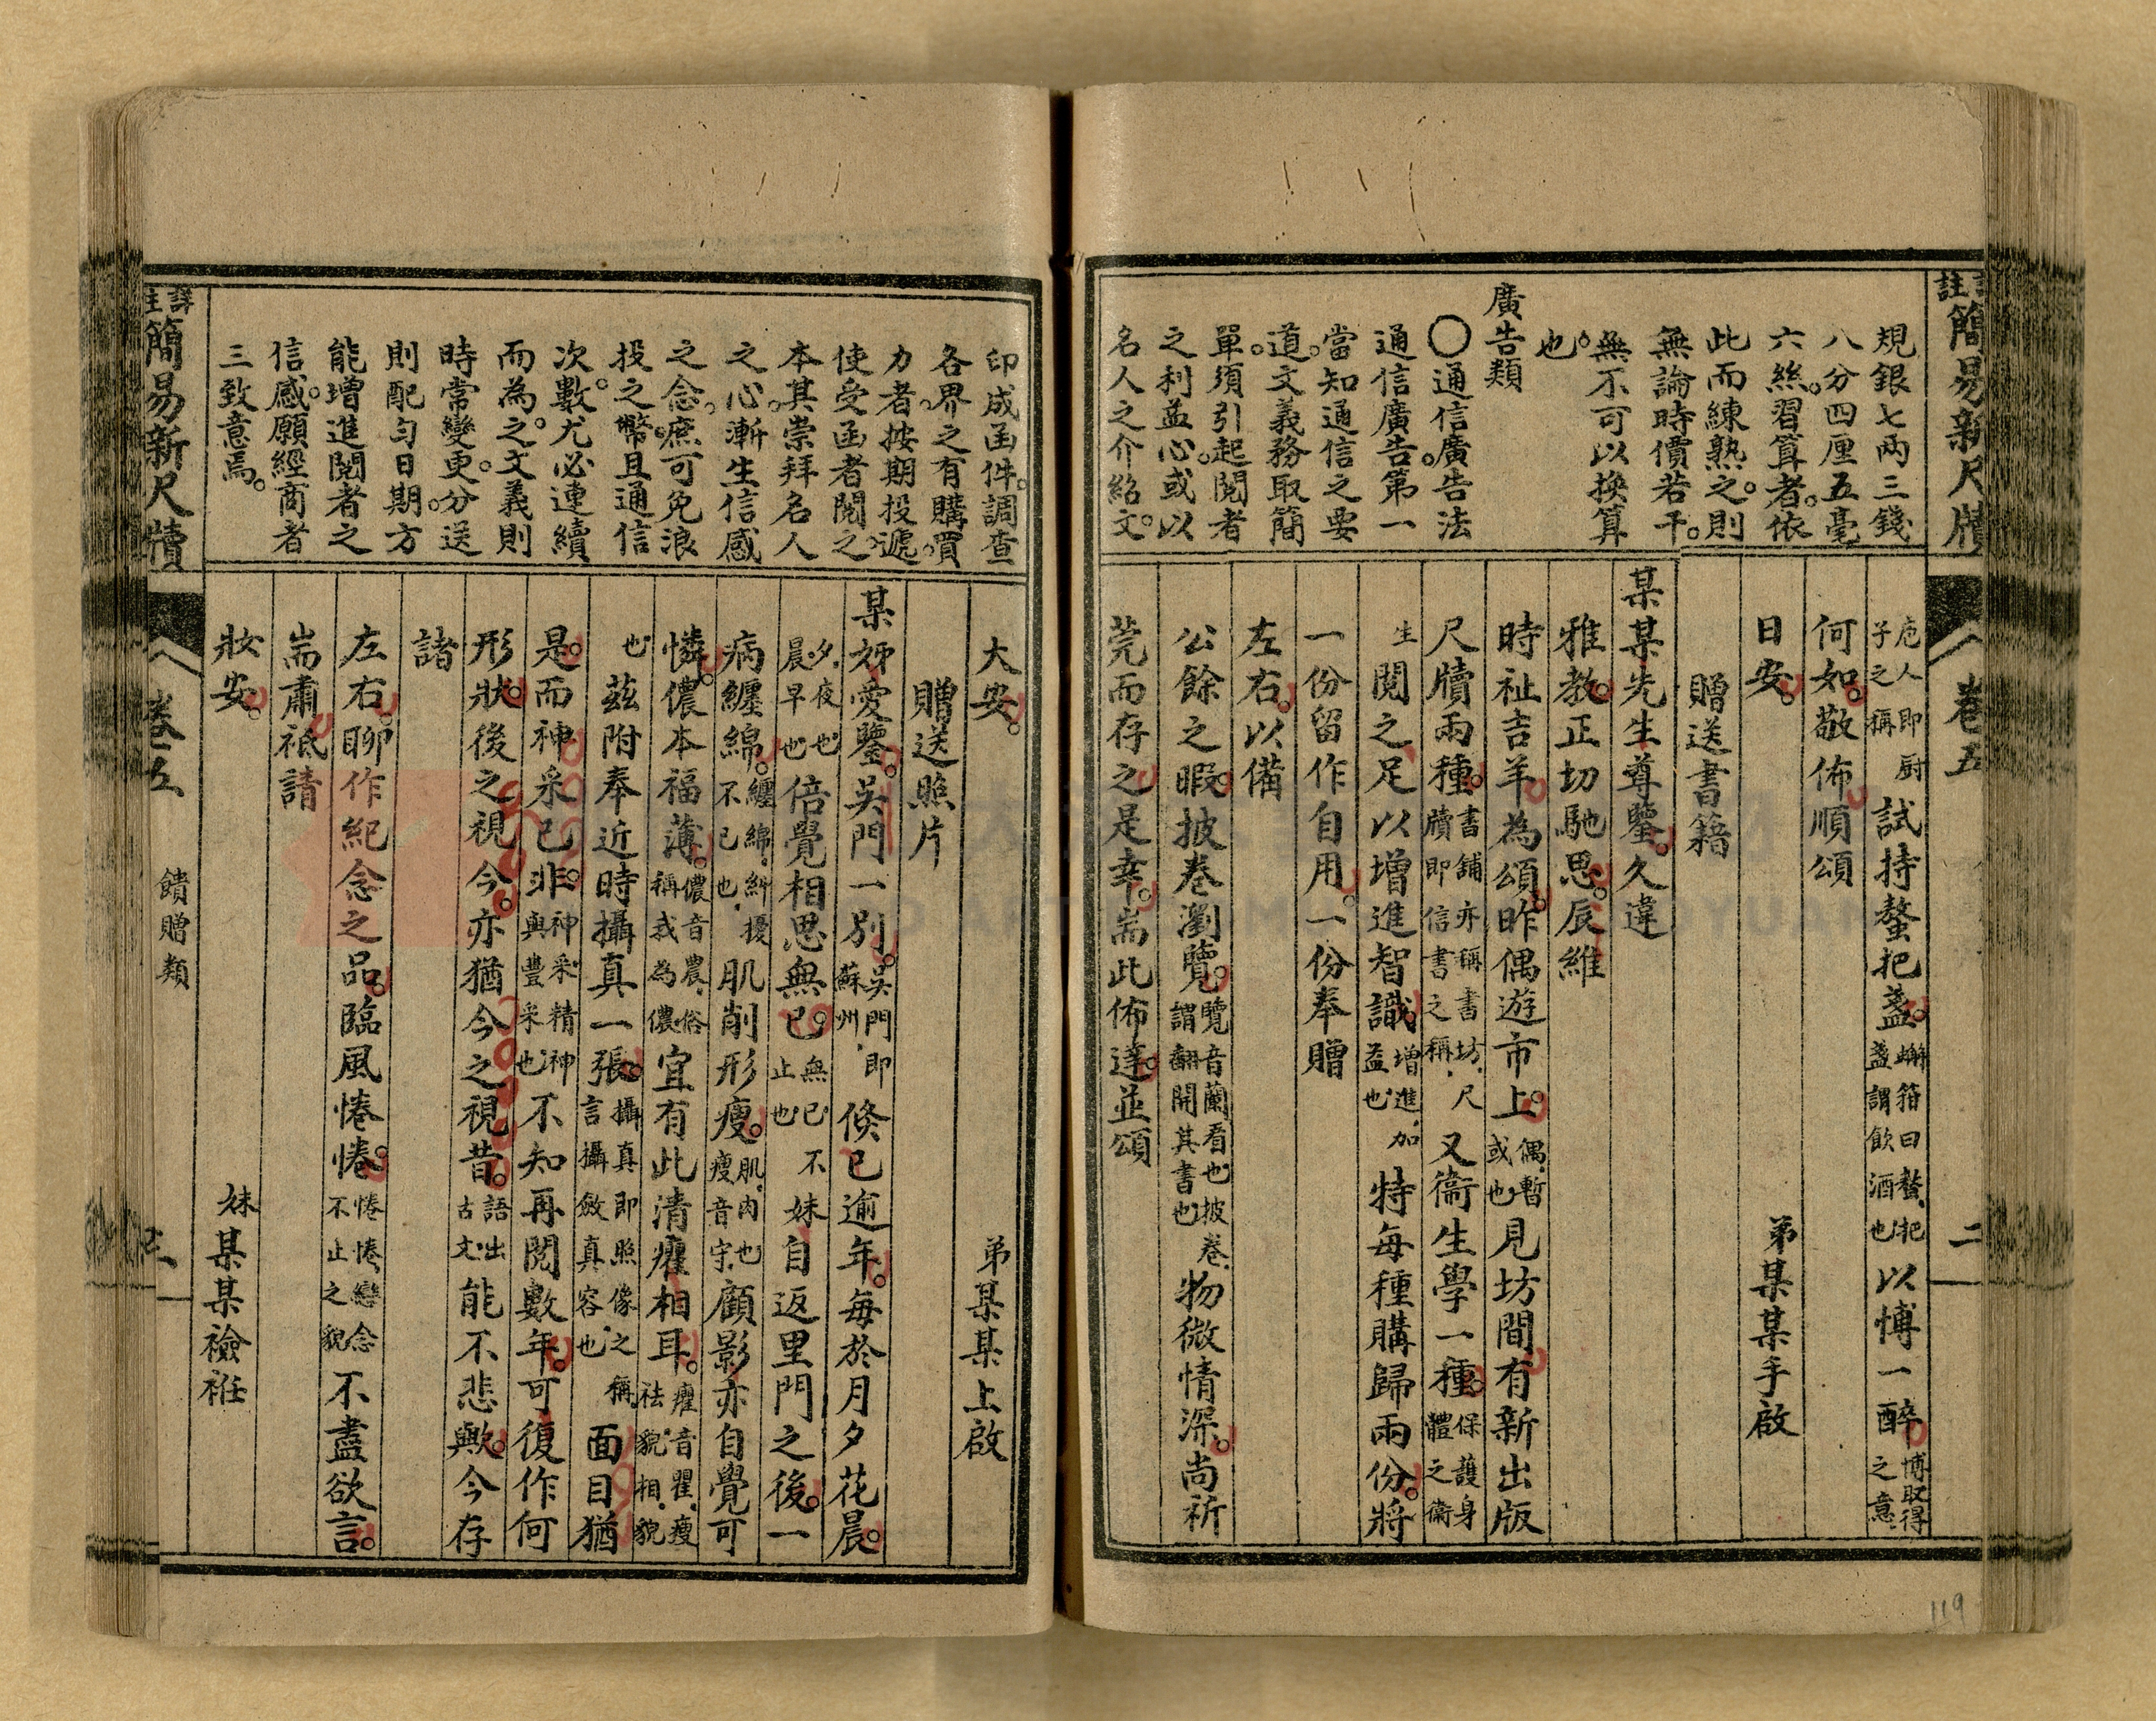 註簡易新尺牘
卷五
二
規銀七兩三錢
八分四厘五毫
六絲。習算者。依
此而練熟之。則
無論時價若干。
無不可以換算
也。
廣告類
〇通信廣告法
通信廣告。第一
當知通信之要
道。文義務取簡
單。須引起閱者
之利益心。或以
名人之介紹文。
庖人即廚
子之稱
試持螯把盞。
蠏箝曰螯、把
盞謂飲酒也
以博一醉
博取得
之意
何如。敬佈順頌
日安。
弟某某手啟
贈送書籍
某某先生尊鑒。久違
雅教。正切馳思。辰維
時祉吉羊為頌。昨偶遊市上。
偶、暫
或也
見坊間有新出版
尺牘兩種。
書舖亦稱書坊、尺
牘即信書之稱、
又衞生學一種。
保護身
體之衞
生
閱之足以增進智識
增進、加
益也
特每種購歸兩份。將
一份留作自用。一份奉贈
左右。以備
公餘之暇。披卷瀏覽。
覽音蘭看也披卷、
謂翻開其書也
物微情深。尚祈
莞而存之是幸。耑此佈達。並頌
119
印成函件。調查
各界之有購買
力者。按期投遞。
使受函者閱之、
本其崇拜名人
之心。漸生信感
之念。庶可免浪
投之幣。且通信
次數。尤必連續
而為之。文義則
時常變更。分送
則配勻日期。方
能增進閱者之
信感。願經商者
三致意焉。
大安。
弟某某上啟
贈送照片
某姊愛鑒。吳門一別。
吳門即
蘇州、
倐已逾年。每於月夕花晨。
夕、夜也
晨、早也
倍覺相思無已。
無已不
止也
妹自返里門之後。一
病纏綿。
纏綿、糾擾
不已也、
肌削形瘦。
肌、肉也
瘦音宗、
顧影亦自覺可
憐。儂本福薄。
儂音農、俗
稱我為儂
宜有此清癯相耳。
癯音瞿、瘦
祛貌、相、貌
也
茲附奉近時攝真一張。
攝真即照像之稱、
言攝斂真容也
面目猶
是。而神采已非。
神采、精神
與豐采也
不知再閱數年。可復作何
形狀。後之視今。亦猶今之視昔。
語出
古文、
能不悲歟。今存
諸
左右。聊作紀念之品。臨風惓惓。
惓惓、戀念
不止之貌
不盡欲言。
耑肅祗請
妝安。
妹某某襝袵
詳註簡易新尺牘
卷五
饋贈類